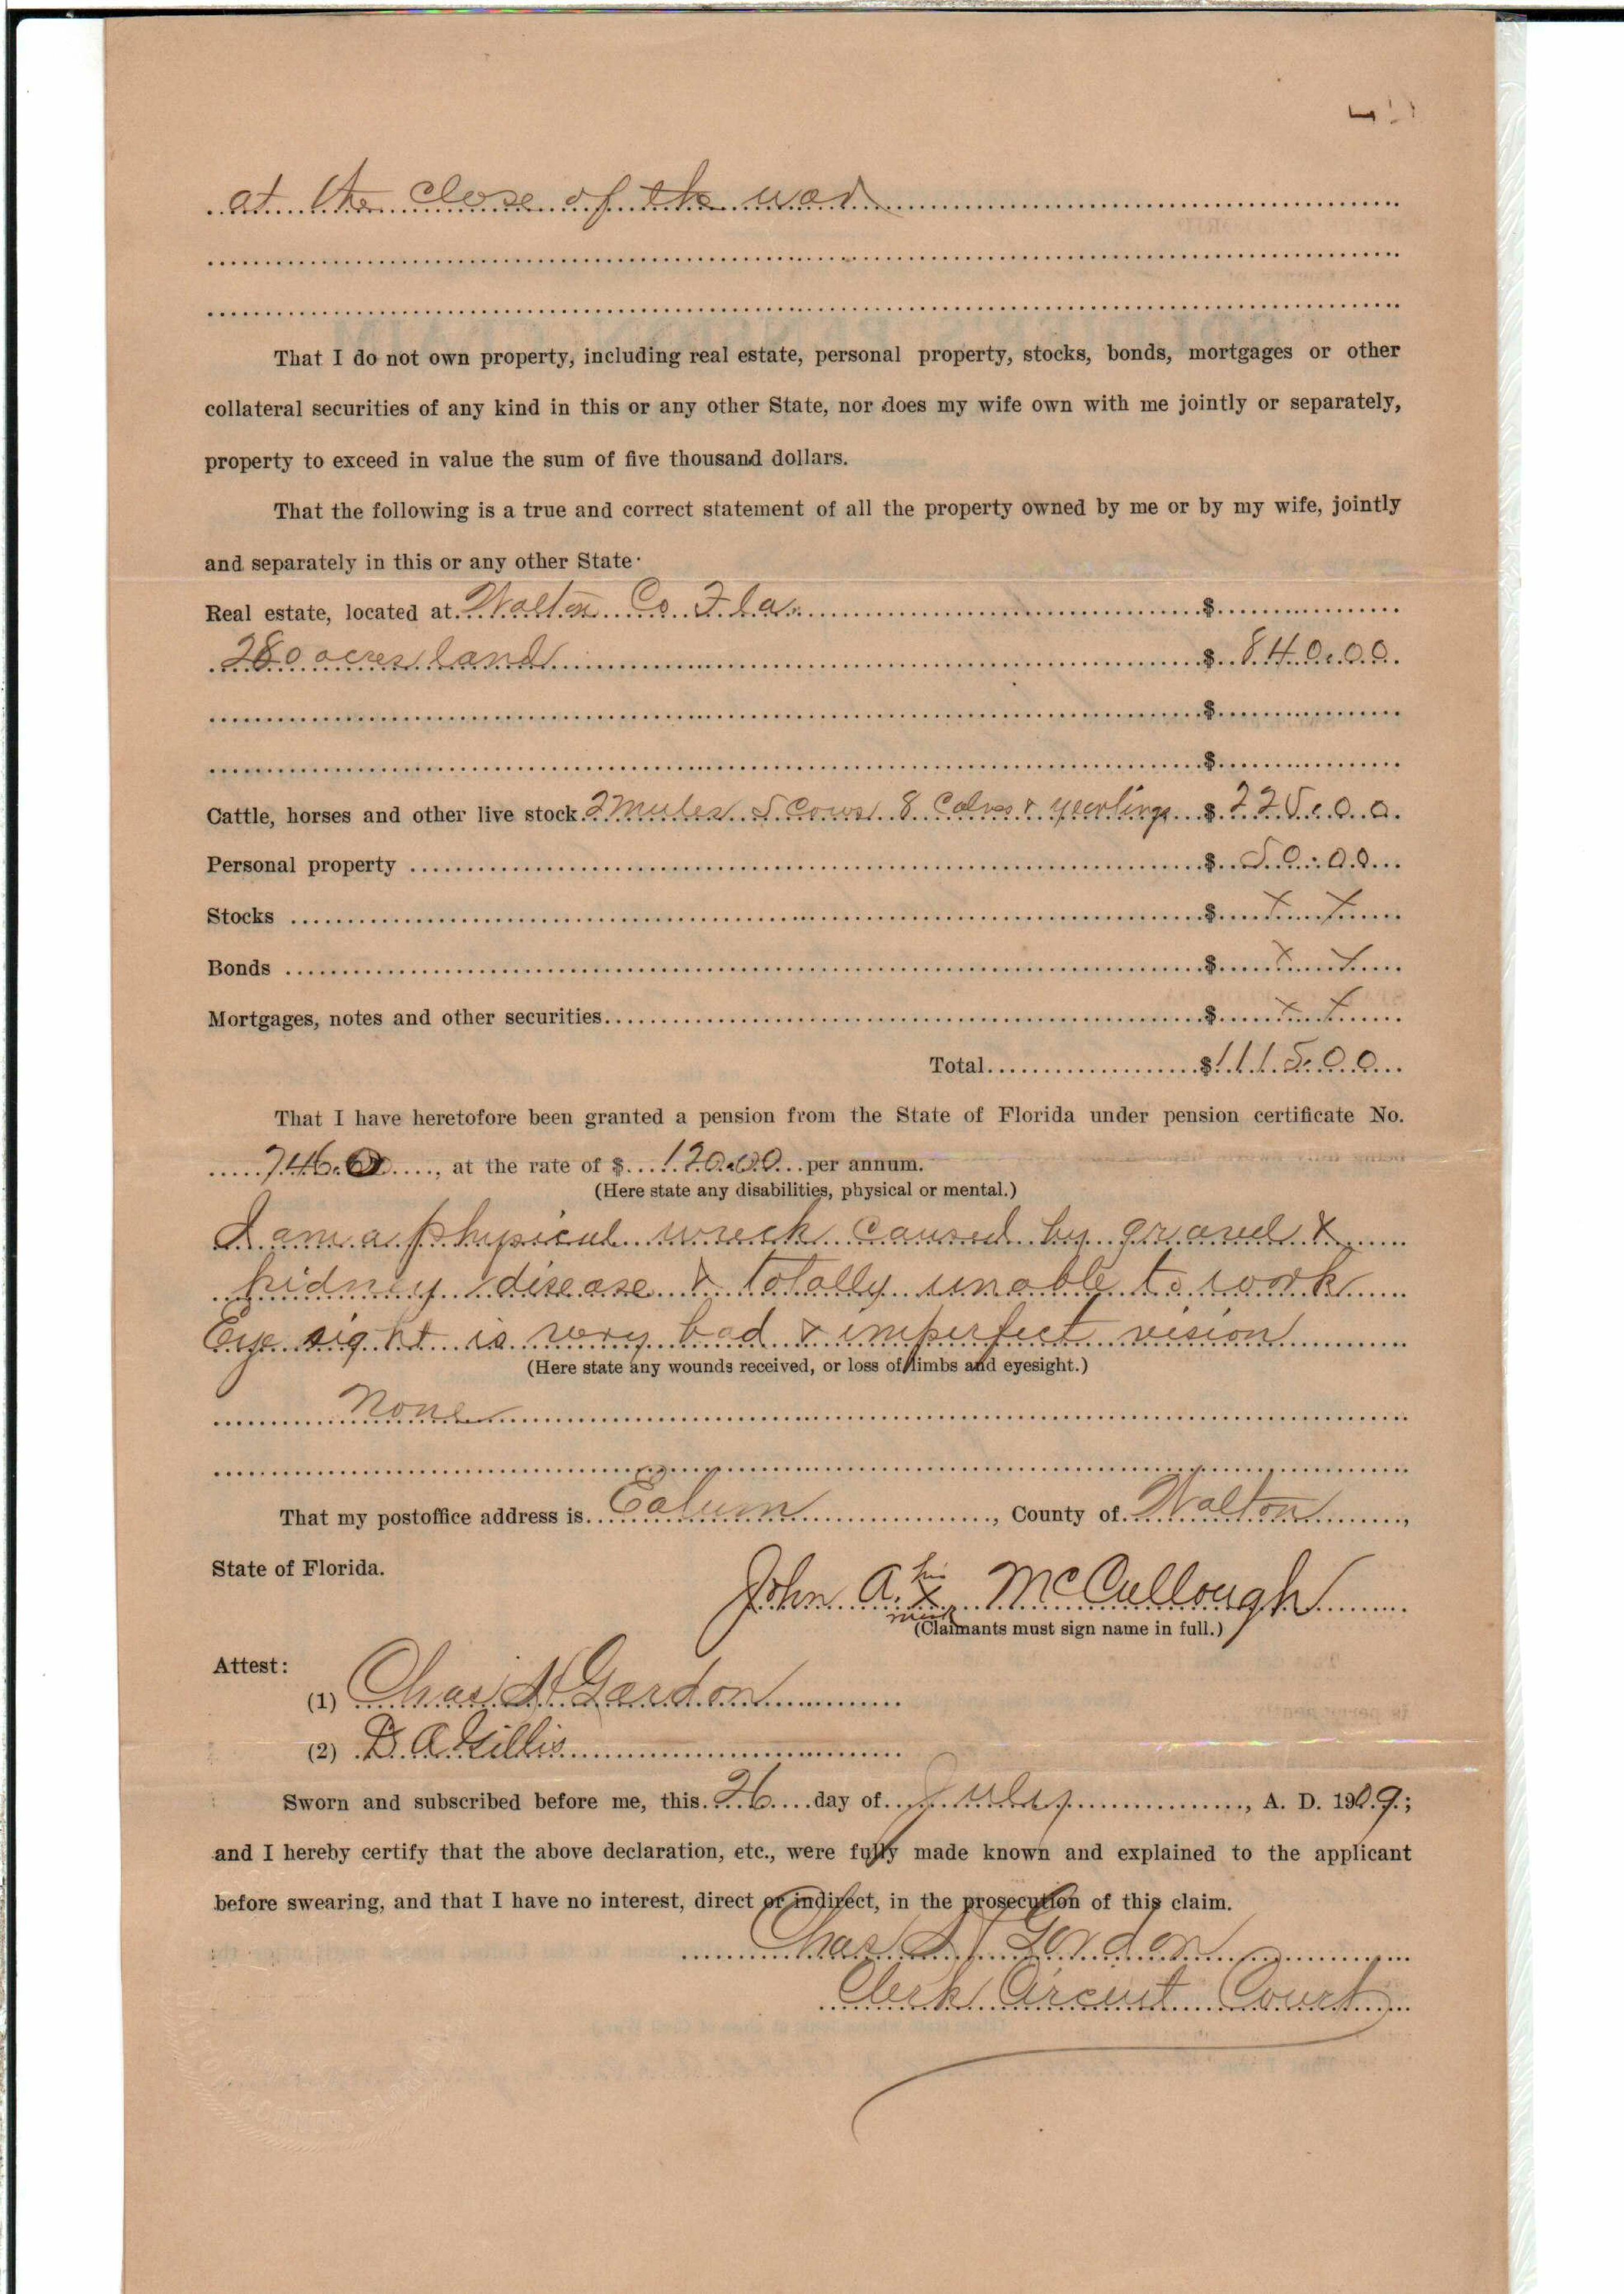 at the close of the war
That I do not own property, including real estate, personal property, stocks, bonds, mortgages or other
collateral securities of any kind in this or any other State, nor does my wife own with me jointly or separately,
property to exceed in value the sum of five thousand dollars.
That the following is a true and correct statement of all the property owned by me or by my wife, jointly
and separately in this or any other State·
Real estate, located at Walton Co Fla. $
280 acres land $ 840.00
$
$
Cattle, horses and other live stock 2 Mules 5 Cows 8 Calves & yearlings $ 225.00
Personal property $ 50.00
Stocks $ x x
Bonds $ x x
Mortgages, notes and other securities $ x x
Total $ 1115.00
That I have heretofore been granted a pension from the State of Florida under pension certificate No.
, at the rate of $ 120.00 per annum.
(Here state any disabilities, physical or mental.)
I am a physical wreck caused by gravel &
kidney disease & totally unable to work
Eye sight is very bad & imperfect vision
(Here state any wounds received, or loss of limbs and eyesight.)
None
That my postoffice address is Ealum, County of Walton,
State of Florida.
John A. his x mark McCullough
(Claimants must sign name in full.)
Attest:
(1) Chas H Gordon
(2) D. A. Gillis
Sworn and subscribed before me, this 26 day of July, A. D. 1909;
and I hereby certify that the above declaration, etc., were fully made known and explained to the applicant
before swearing, and that I have no interest, direct or indirect, in the prosecution of this claim.
Chas H Gordon
Clerk Circuit Court